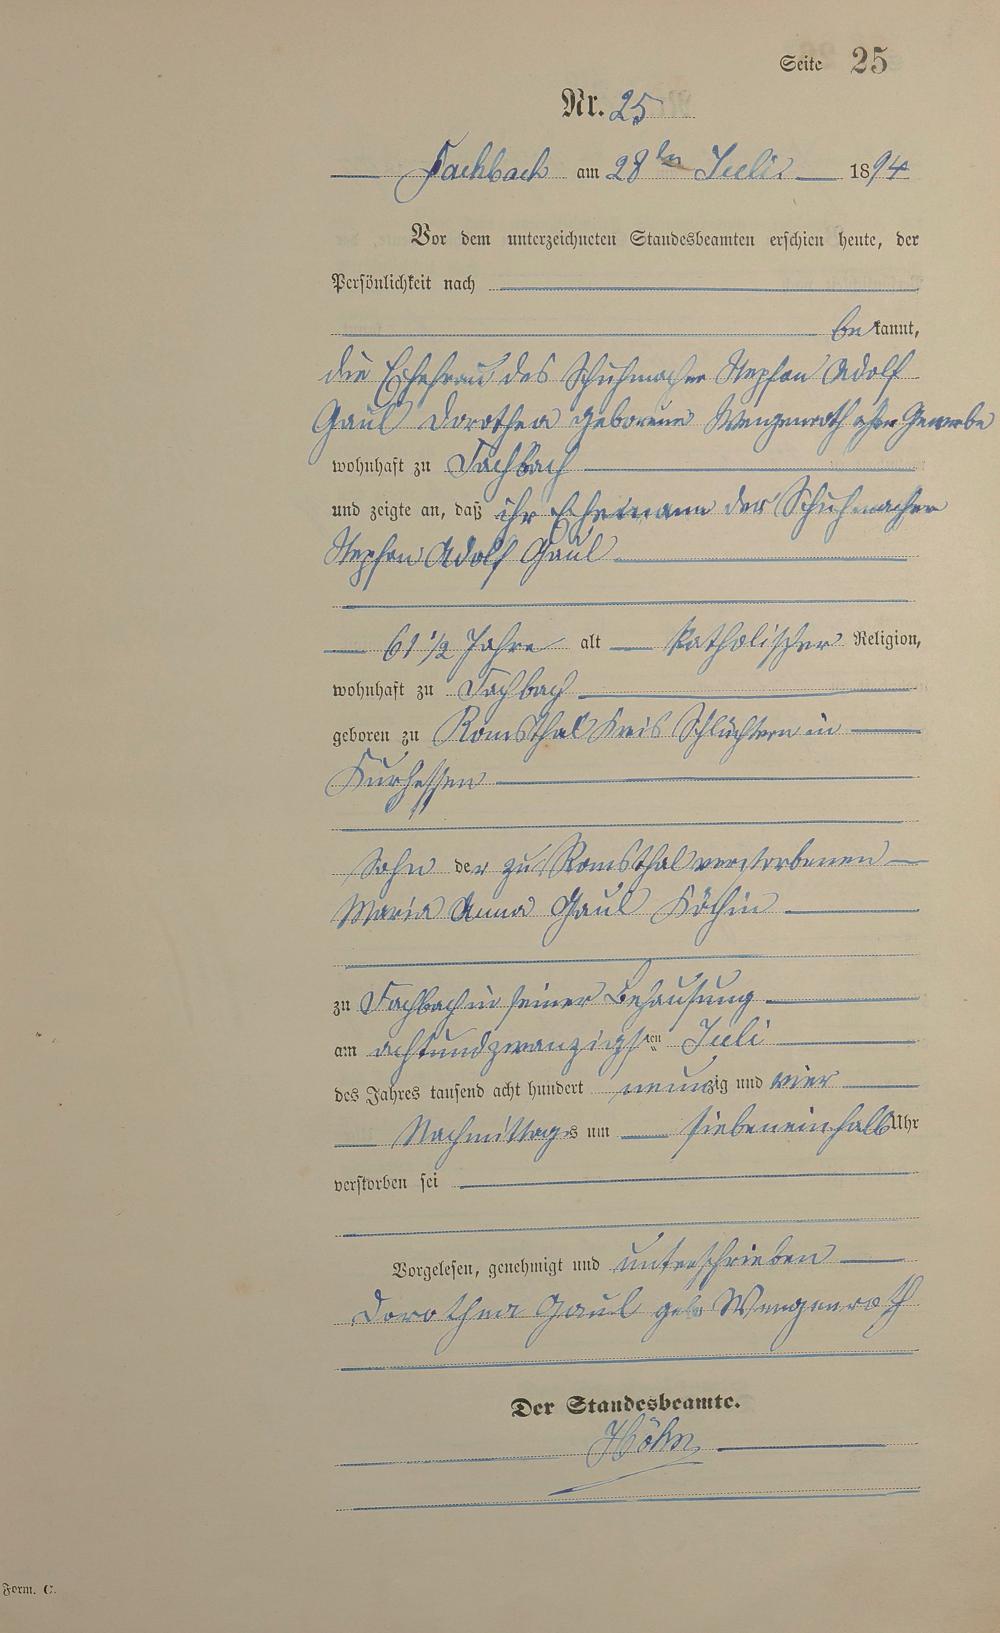 Seite 25
Nr. 25
Fachbach am 28ten Juli 1894
Vor dem unterzeichneten Standesbeamten erschien heute, der
Persönlichkeit nach
bekannt,
die Ehefrau des Schuhmacher Stephan Adolf
Gaul Dorothea geborene Wengenroth ohne Gewerbe
wohnhaft zu Fachbach
und zeigte an, daß ihr Ehemann der Schuhmacher
Stephan Adolf Gaul
61 1/2 Jahre alt Katholischer Religion,
wohnhaft zu Fachbach
geboren zu Romsthal Kreis Schlüchtern in
Kurhessen
Sohn der zu Romsthal verstorbenen
Maria Anna Gaul Köchin
zu Fachbach in seiner Behausung
am achtundzwanzigsten Juli
des Jahres tausend acht hundert neunzig und vier
Nachmittags um siebeneinhalb Uhr
verstorben sei
Vorgelesen, genehmigt und unterschrieben
Dorothea Gaul geb Wengenroth
Der Standesbeamte.
Höhn
Form. C.